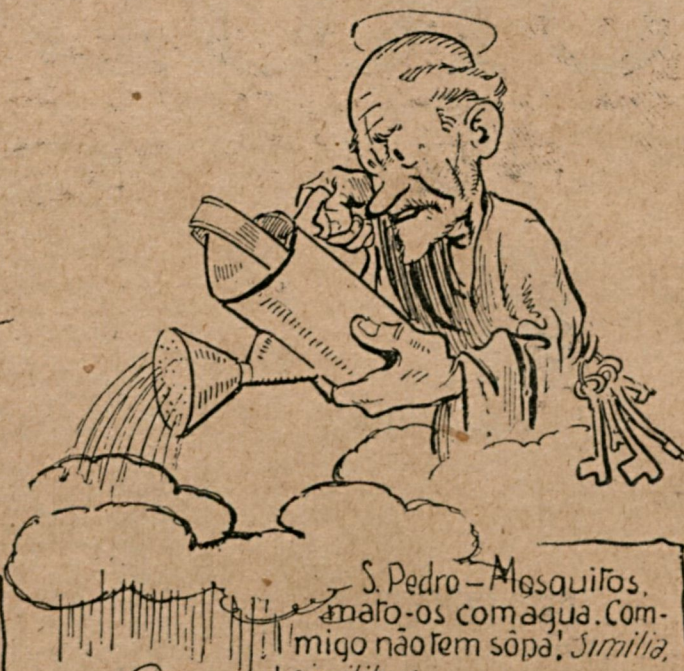 S. Pedro – Mosquitos,
mato-os com agua. Com-
migo não tem sôpa! Similia,